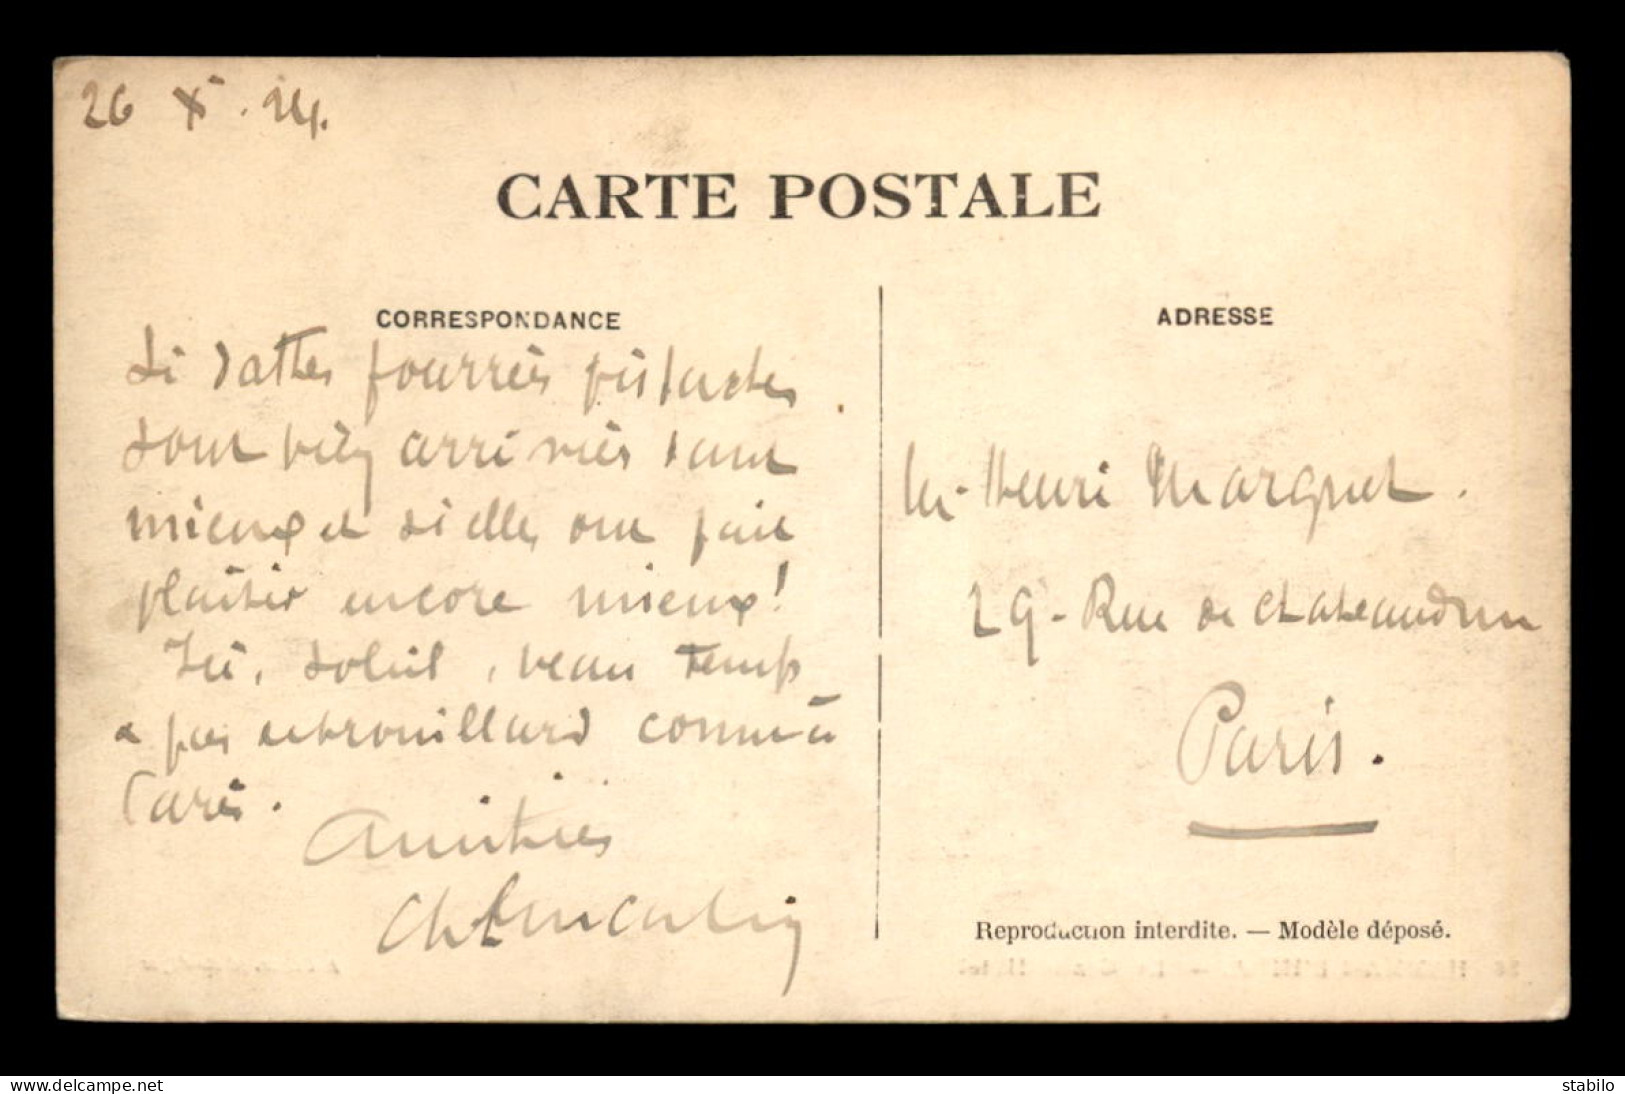 26 X . 24.
CARTE POSTALE
CORRESPONDANCE
Si dattes fourrées pistaches
sont bien arrivées tant
mieux et si elles ont fait
plaisir encore mieux!
Ici, soleil, beau temps
& pas de brouillard comme à
Paris.
Amitiés
ADRESSE
Mr Henri Marguet.
29 - Rue de Chateaudun
Paris.
Reproduction interdite. — Modèle déposé.
www.delcampe.net
stabilo